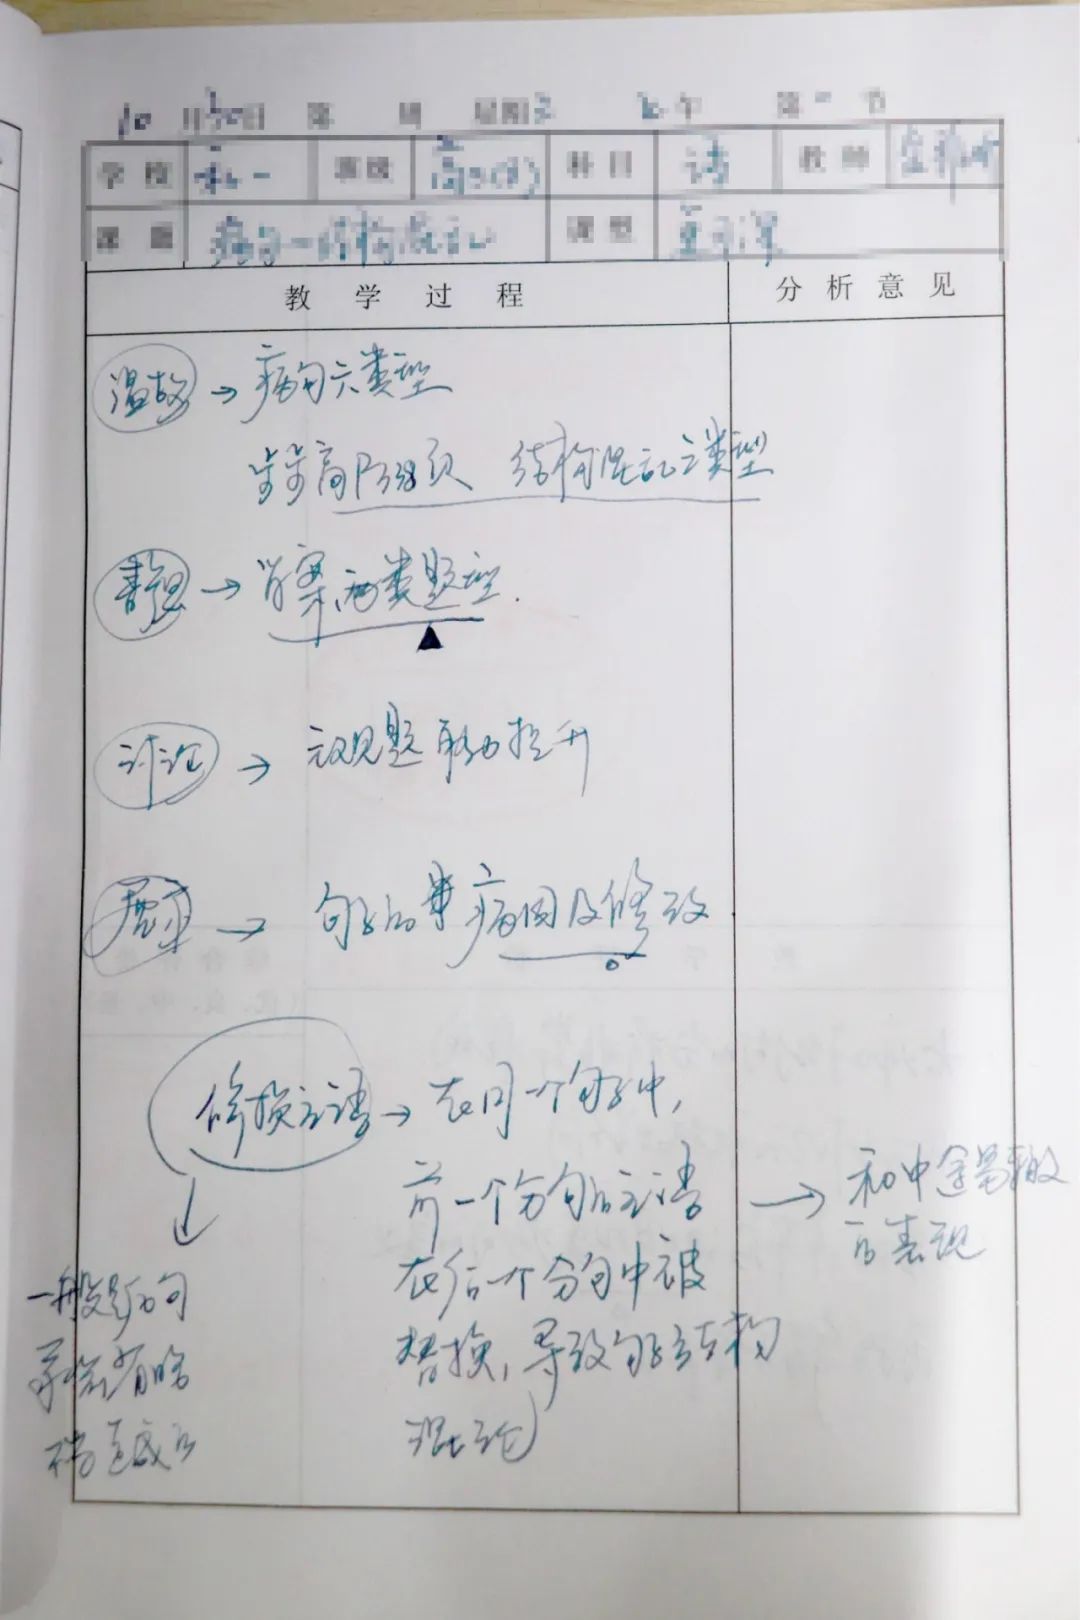 10月30日 第 周 星期 午 第 节
学校 班级 科目 语 教师
课题 病句一结构混乱 课型
教学过程 分析意见
温故 → 病句六类型
步步高P338页 结构混乱之类型
静思 → 学案,两类题型.
讨论 → 议见题 能力提升
展示 → 句子的 病因及修改
偷换主语 → 在同一个句子中,
前一个分句的主语 → 和中途易辙的表现
在后一个分句中被
替换,导致句子结构
混乱
一般是因为句
子 省略
不当造成的